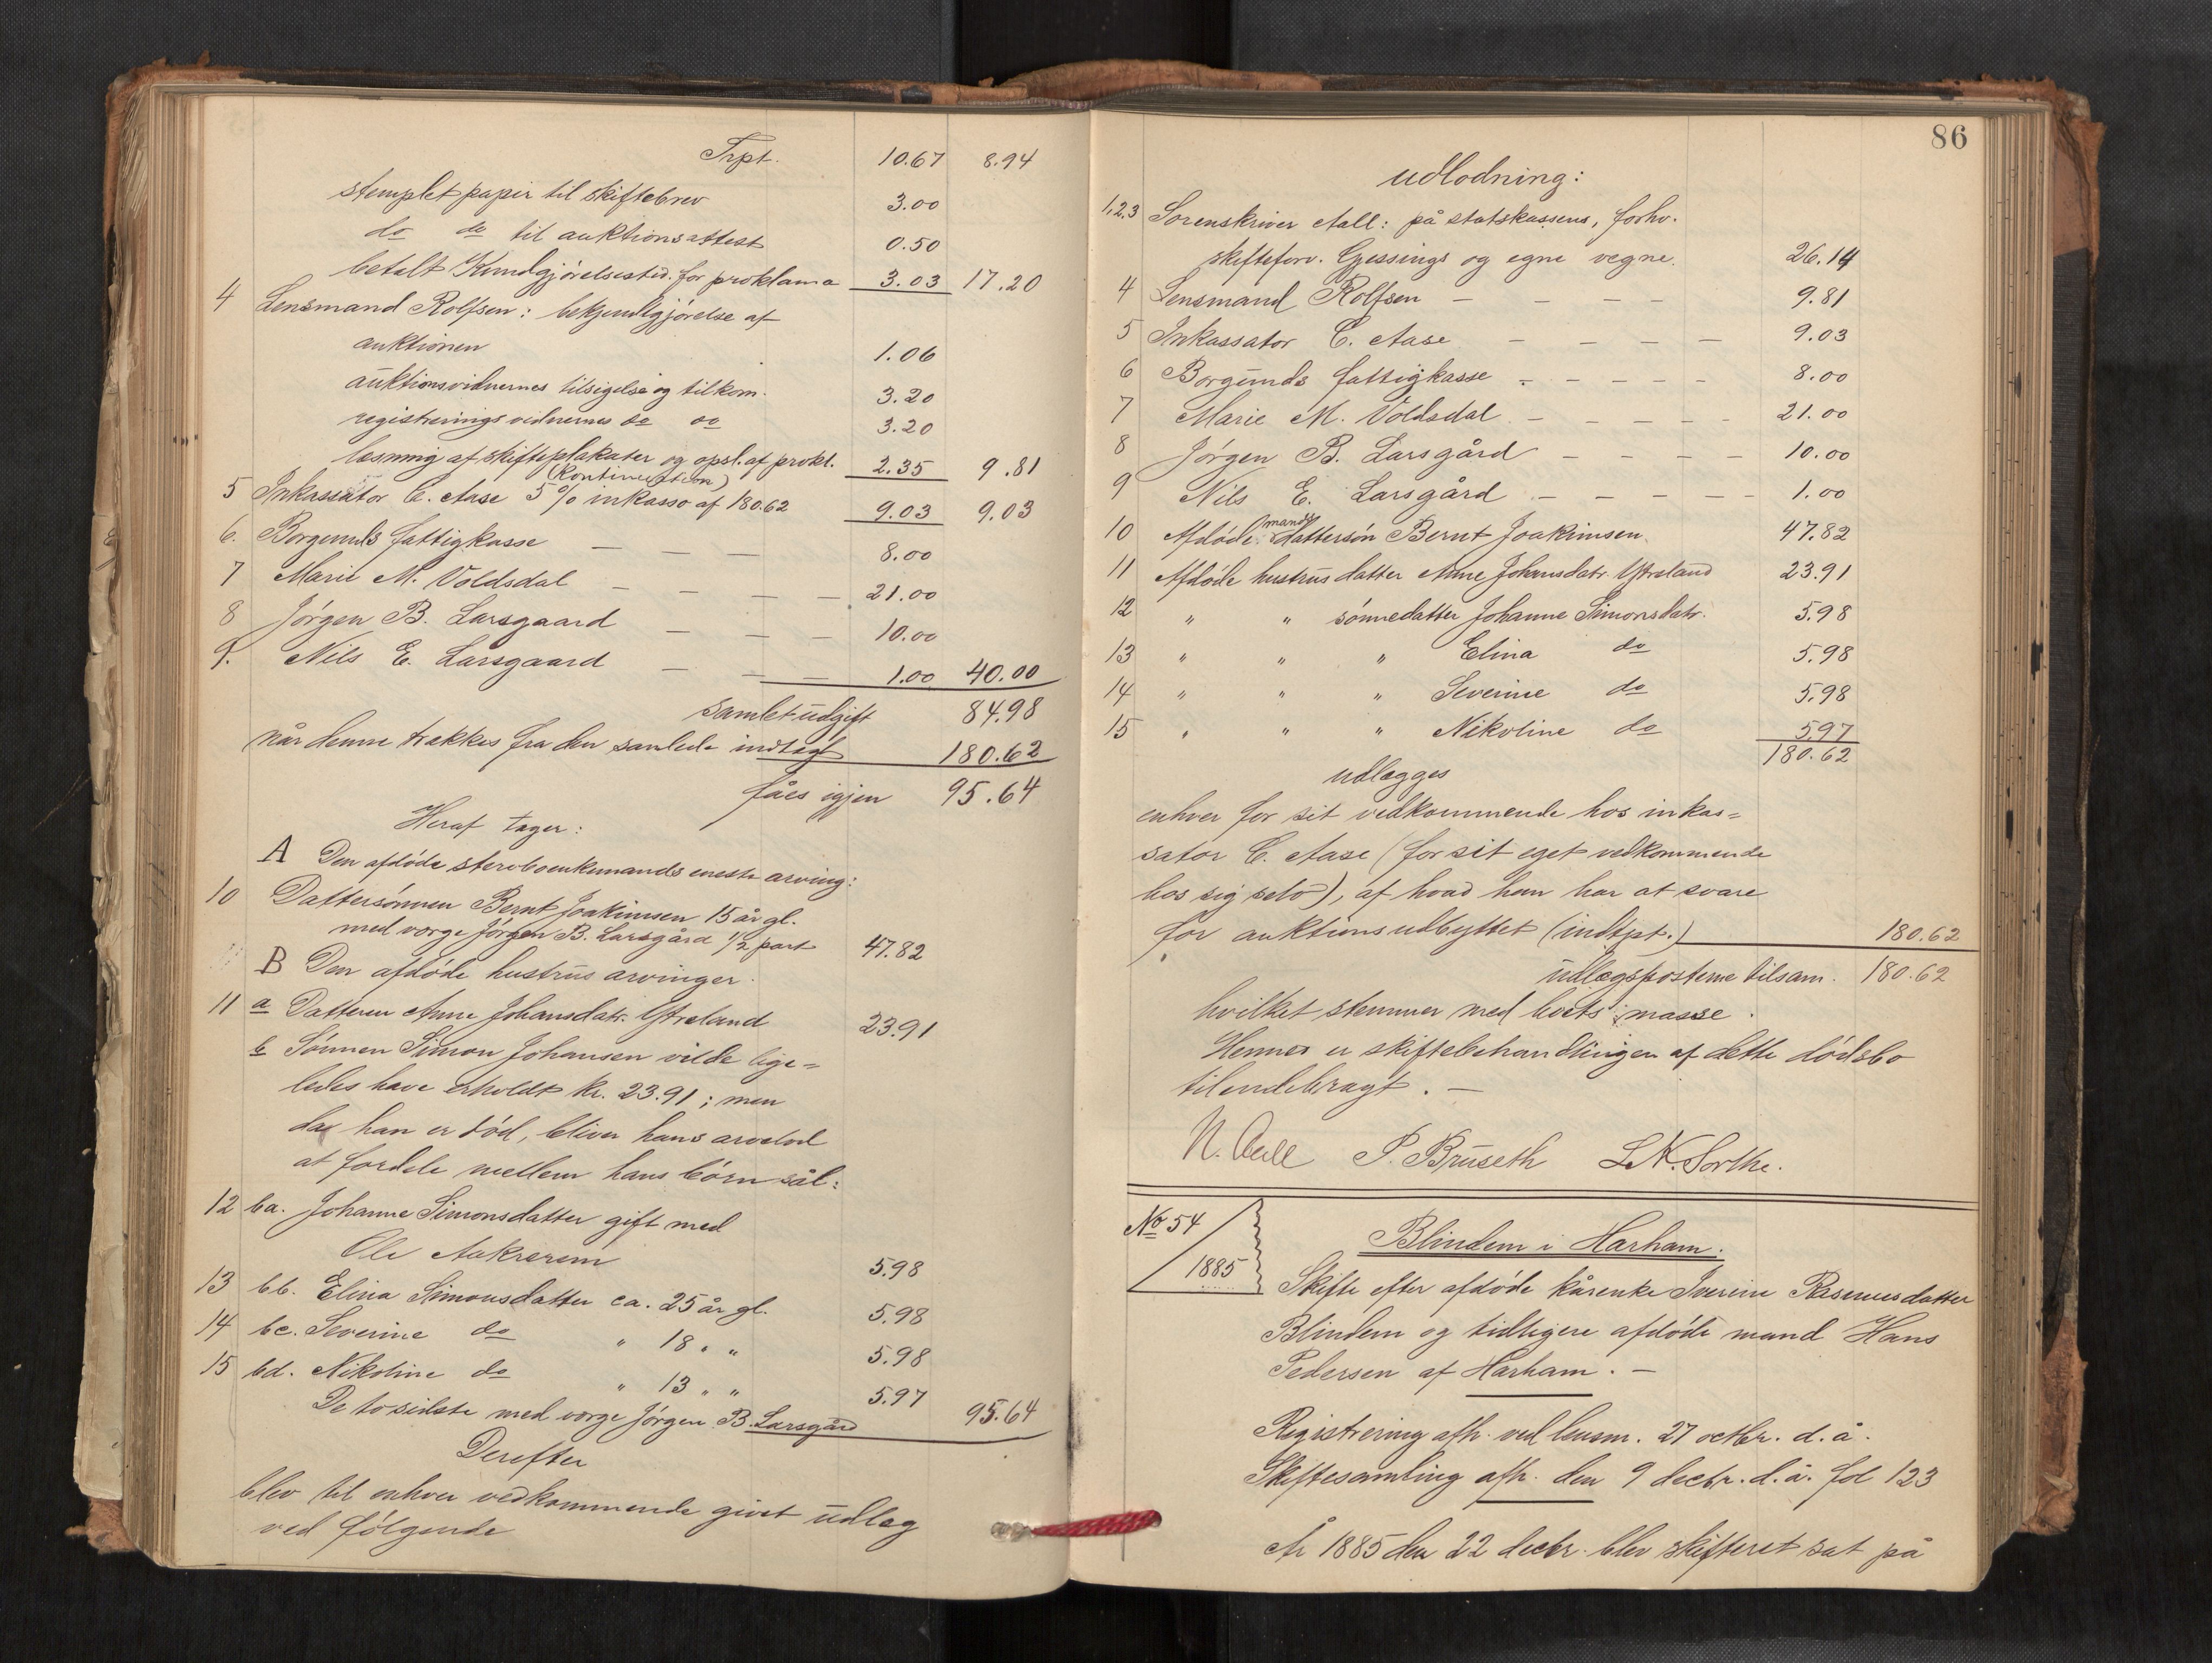 Trpt. 10.67 8.94
stemplet papir til skiftebrev 3.00
do do til auktionsattest 0.50
betalt Kundgjørelsestid. for proklama 3.03 17.20
4 Lensmand Rolfsen: bekjendtgjørelse af
auktionen 1.06
auktionsvidnernes tilsigelse og tilkom. 3.20
registreringsvidnernes do do 3.20
læsning af skifteplakater og opsl. af prokl. 2.35 9.81
(kontinuation)
5 Inkassator C. Aase 5 % inkasso af 180.62 9.03 9.03
6. Borgunds fattigkasse — — — 8.00
7 Marie M. Voldsdal — — — — 21.00
8 Jørgen B. Larsgaard — — — 10.00
9. Nils E. Larsgaard — — — 1.00 40.00
samlet udgift 84.98
når denne trækkes fra den samlede indtægt 180.62
fåes igjen 95.64
Heraf tager:
A Den afdøde sterboenkemands eneste arving:
10 Dattersønnen Bernt Joakimsen 15 år gl.
med værge Jørgen B. Larsgård 1/2 part 47.82
B Den afdøde hustrus arvinger.
11 a Datteren Anne Johansdatr. Ytreland 23.91
b Sønnen Simon Johansen vilde lige=
ledes have erholdt kr. 23.91; men
da han er død, bliver hans arvelod
at fordele mellem hans børn sål:
12 ba. Johanne Simonsdatter gift med
Ole Aakrerem 5.98
13 bb. Elina Simonsdatter ca. 25 år gl. 5.98
14 bc. Severine do " 18 " " 5.98
15 bd. Nikoline do " 13 " " 5.97
De to sidste med værge Jørgen B. Larsgård 95.64
Derefter
blev til enhver vedkommende givet udlæg
ved følgende
86
udlodning:
1,2,3 Sorenskriver Aall: på statskassens, forhv.
skifteforv. Gjessings og egne vegne. 26.14
4 Lensmand Rolfsen — — — — 9.81
5 Inkassator C. Aase — — — — 9.03
6 Borgunds fattigkasse — — — — — 8.00
7 Marie M. Voldsdal — — — — — 21.00
8 Jørgen B. Larsgård — — — — — 10.00
9 Nils E. Larsgård — — — — — 1.00
10 Afdøde mands dattersøn Bernt Joakimsen 47.82
11 Afdøde hustrus datter Anne Johansdatr. Ytreland 23.91
12 " " sønnedatter Johanne Simonsdatr. 5.98
13 " " " Elina do 5.98
14 " " " Severine do 5.98
15 " " " Nikoline do 5.97
180.62
udlægges
enhver for sit vedkommende hos inkas=
sator C. Aase (for sit eget vedkommende
hos sig selv), af hvad han har at svare
for auktionsudbyttet (indtpt.) 180.62
udlægsposterne tilsam. 180.62
hvilket stemmer med boets masse.
Hermed er skiftebehandlingen af dette dødsbo
tilendebragt. —
N. Aall P. Bruseth L. N. Sorthe.
No 54
1885
Blindem i Harham.
Skifte efter afdøde kårenke Iverine Rasmusdatter
Blindem og tidligere afdøde mand Hans
Pedersen af Harham. —
Registrering afh. ved lensm. 27 octbr. d. å.
Skiftesamling afh. den 9 decbr. d. å. fol 123
År 1885 den 22 decbr. blev skifteret sat på